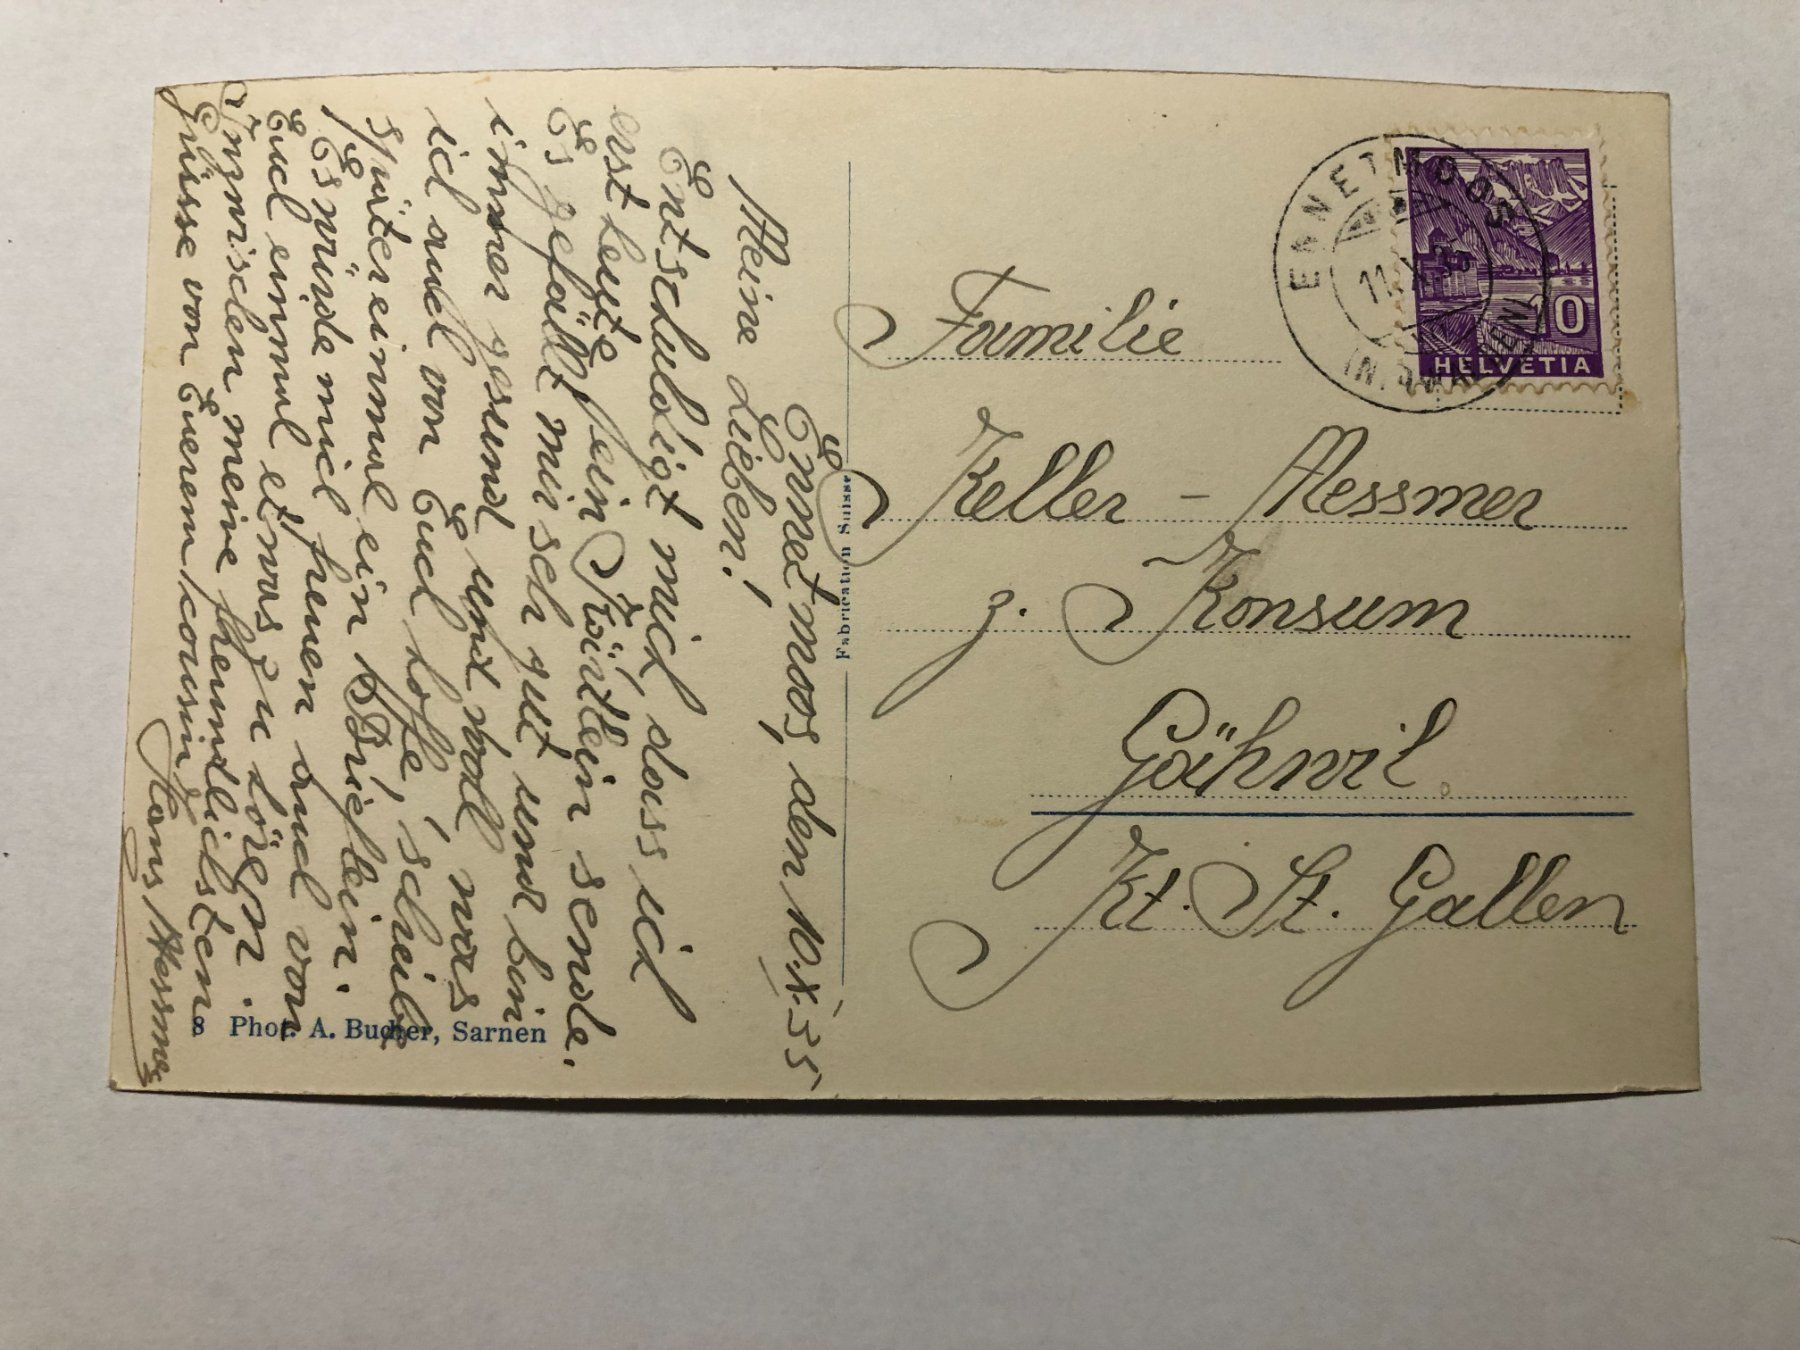 Ennetmoos, den 10.X.35
Meine Lieben!
Entschuldigt mich dass ich
erst heute ein Wörtlein sende.
Es gefällt mir sehr gut und bin
immer gesund und wohl was
ich auch von Euch hoffe, schreibe
später einmal ein Brieflein.
Es würde mich freuen auch von
Euch einmal etwas zu hören.
Inzwischen meine freundlichsten
Grüsse von Euerem cousin
Hans Messmer
8 Phot. A. Bucher, Sarnen
Fabrication Suisse
ENNETMOOS
11.X.35
(NIDWALDEN)
10
HELVETIA
Familie
Keller - Messmer
z. Konsum
Gähwil.
Kt. St. Gallen